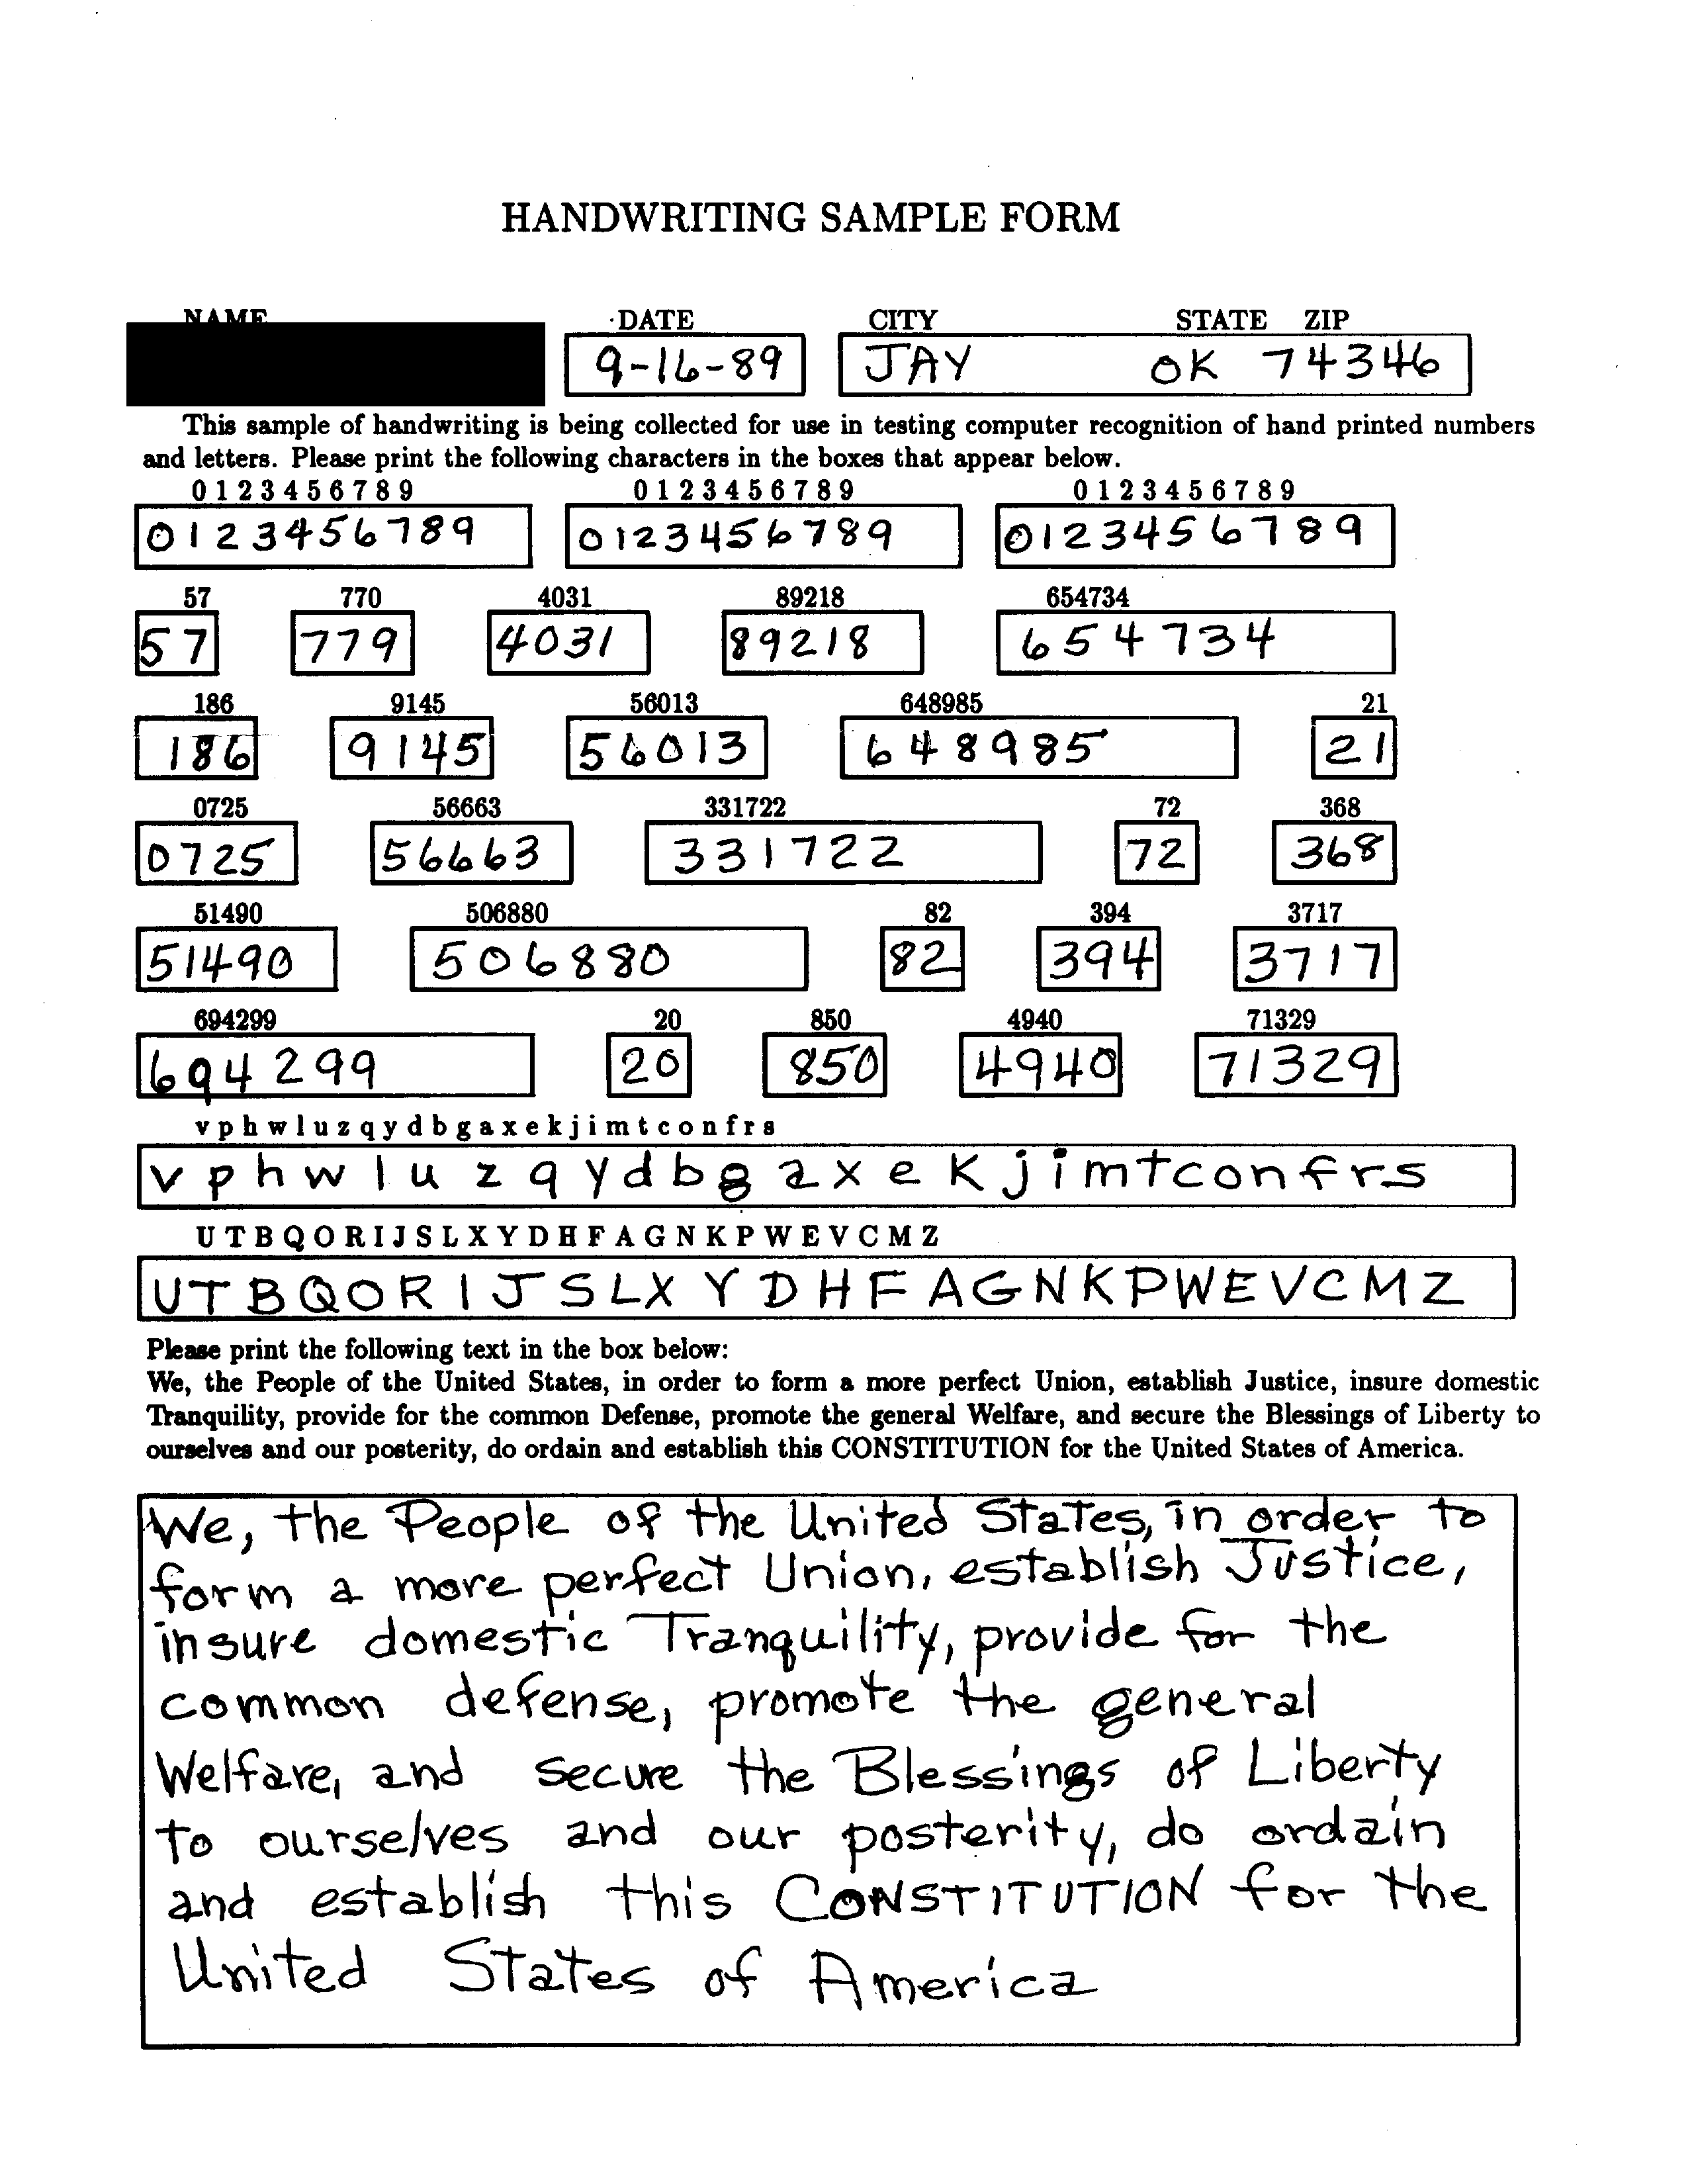 HANDWRITING SAMPLE FORM
NAME DATE CITY STATE ZIP
9-16-89 JAY OK 74346
This sample of handwriting is being collected for use in testing computer recognition of hand printed numbers
and letters. Please print the following characters in the boxes that appear below.
0 1 2 3 4 5 6 7 8 9 0 1 2 3 4 5 6 7 8 9 0 1 2 3 4 5 6 7 8 9
0123456789 0123456789 0123456789
57 770 4031 89218 654734
57 779 4031 89218 654734
186 9145 56013 648985 21
186 9145 56013 648985 21
0725 56663 331722 72 368
0725 56663 331722 72 368
51490 506880 82 394 3717
51490 506880 82 394 3717
694299 20 850 4940 71329
694299 20 850 4940 71329
v p h w l u z q y d b g a x e k j i m t c o n f r s
v p h w l u z q y d b g a x e k j i m t c o n f r s
U T B Q O R I J S L X Y D H F A G N K P W E V C M Z
U T B Q O R I J S L X Y D H F A G N K P W E V C M Z
Please print the following text in the box below:
We, the People of the United States, in order to form a more perfect Union, establish Justice, insure domestic
Tranquility, provide for the common Defense, promote the general Welfare, and secure the Blessings of Liberty to
ourselves and our posterity, do ordain and establish this CONSTITUTION for the United States of America.
We, the People of the United States, in order to
form a more perfect Union, establish Justice,
insure domestic Tranquility, provide for the
common defense, promote the general
Welfare, and secure the Blessings of Liberty
to ourselves and our posterity, do ordain
and establish this CONSTITUTION for the
United States of America